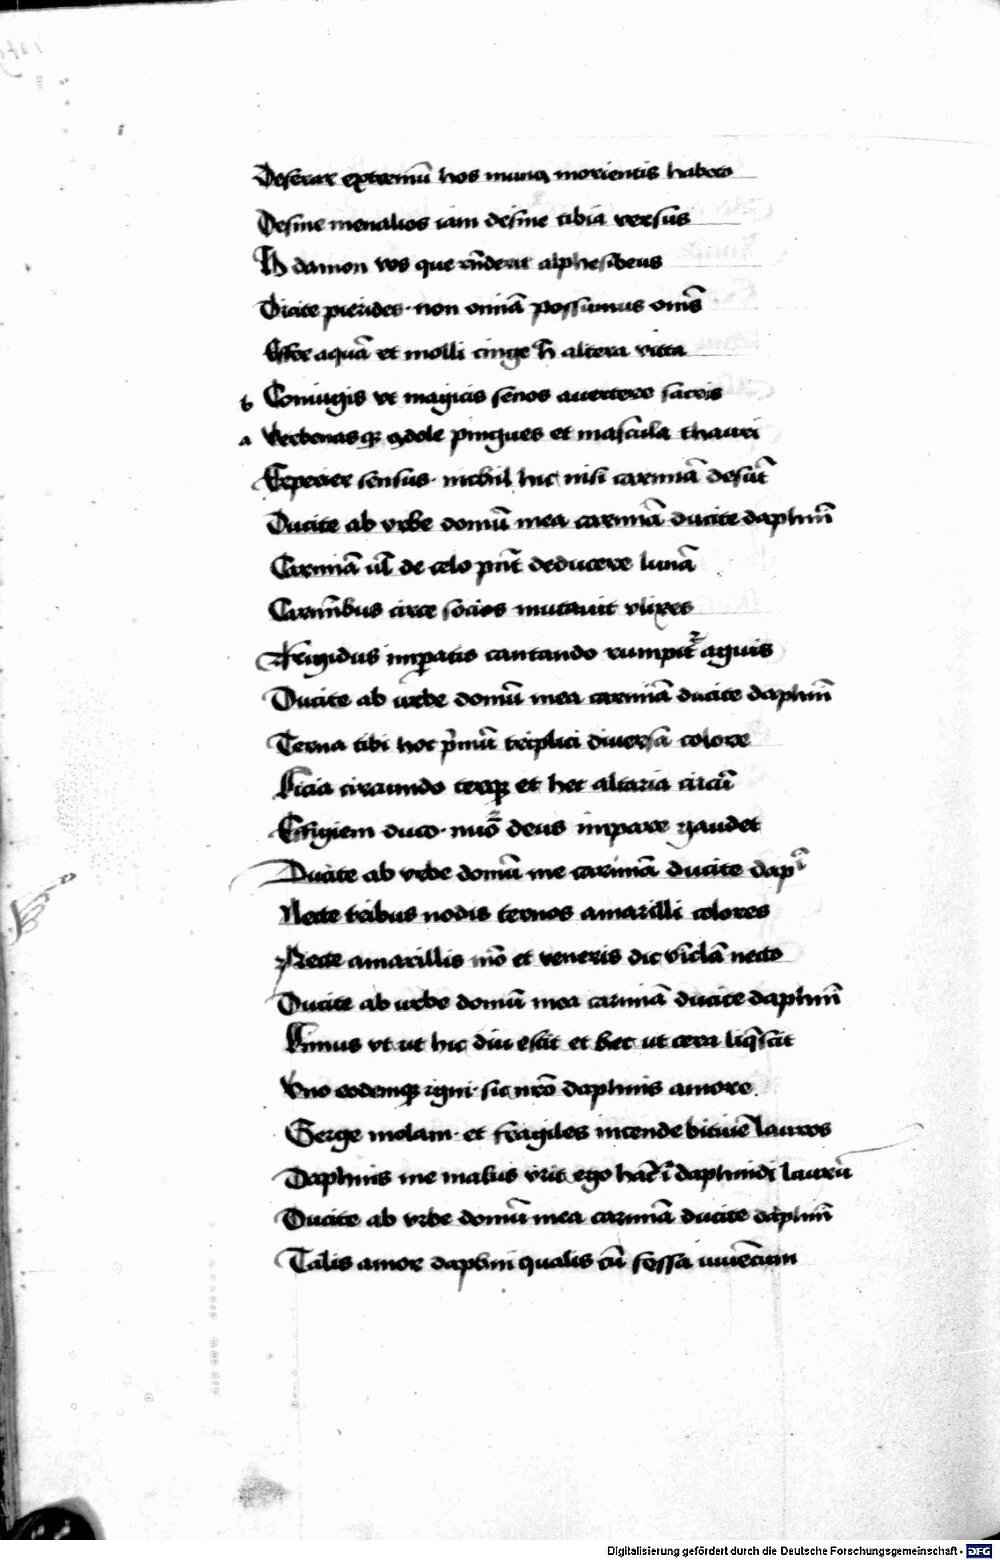 Deferar extremū hos munꝰ morientis habeto
Desine menalios iam desine tibia versus
H damon vos que rn̄derit alphesibeus
Dicite pierides · non omīa possumus om̄s
Effer aquā et molli cinge h̄ altera vitta
b Coniugis vt magicis senos auertere sacris
a Verbenasqꝫ adole pingues et mascula thauri
Experier sensus · nichil hic nisi carminā desūt
Ducite ab vrbe domū mea carminā ducite daphnī
Carminā ul̄ de celo pn̄t deducere lunā
Carmīnbus circe socios mutauit vlixes
Frigidus inpratis cantando rumpit᷑ aguis
Ducite ab urbe domū mea carminā ducite daphnī
Terna tibi hoc pͥmū triplici diuersa colore
Licia circumdo terqꝫ et hec altaria circū
Effigiem duco · nūo deus inpare gaudet
Ducite ab vrbe domū me carminā ducite dapͥ
Necte tribus nodis ternos amarilli colores
Necte amarillis mō et veneris dic vīclā necto
Ducite ab urbe domū mea carminā ducite daphnī
Limus vt ut hic diu escit et hec ut cera liq̄scit
Vno eodemqꝫ igni · sic nrō daphnis amore
Serge molam · et fragiles incende bituīe lauros
Daphnis me malus vrit ego hāc ī daphnidi laurū
Ducite ab vrbe domū mea carminā ducite daphnī
Talis amor daphni qualis cū fessa iuuēcum
Digitalisierung gefördert durch die Deutsche Forschungsgemeinschaft - DFG